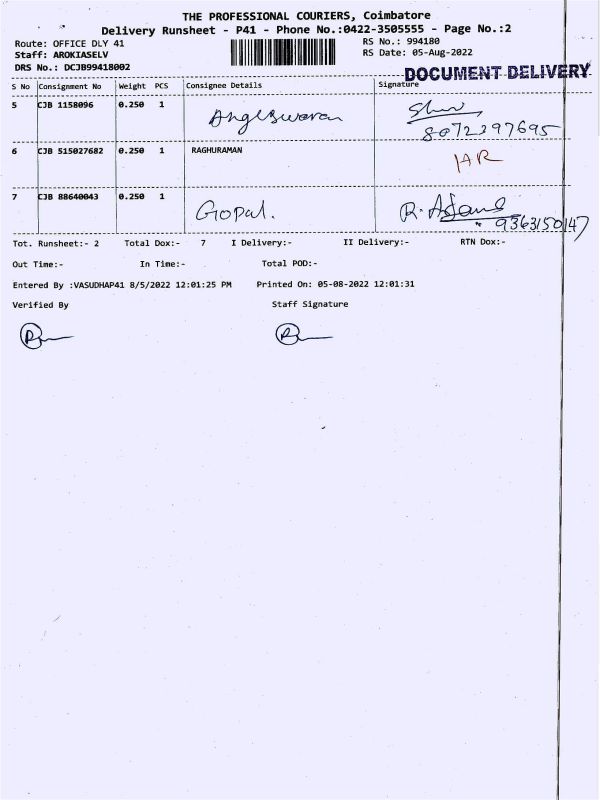 THE PROFESSIONAL COURIERS, Coimbatore
Delivery Runsheet - P41 - Phone No.:0422-3505555 - Page No.:2
Route: OFFICE DLY 41
RS No.: 994180
Staff: AROKIASELV
RS Date: 05-Aug-2022
DRS No.: DCJB99418002
DOCUMENT DELIVERY
S No Consignment No Weight PCS Consignee Details Signature
5 CJB 1158096 0.250 1
8072297695
6 CJB 515027682 0.250 1 RAGHURAMAN HR
7 CJB 88640043 0.250 1 Gopal.
9363150147
Tot. Runsheet:- 2 Total Dox:- 7 I Delivery:- II Delivery:- RTN Dox:-
Out Time:- In Time:- Total POD:-
Entered By :VASUDHAP41 8/5/2022 12:01:25 PM Printed On: 05-08-2022 12:01:31
Verified By Staff Signature